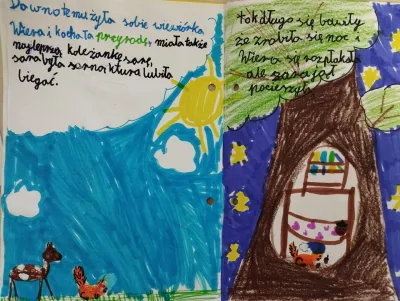 Dawno temu żyła sobie wiewiórka
Wiera i kochała przyrodę, miała także
najlepszą koleżankę sarę,
sara była sarno, ktura lubiła
biegać.
tok długo się bawiły
że zrobiła się noc i
Wiera się rozpłakała
ale sara ją
pocieszyła